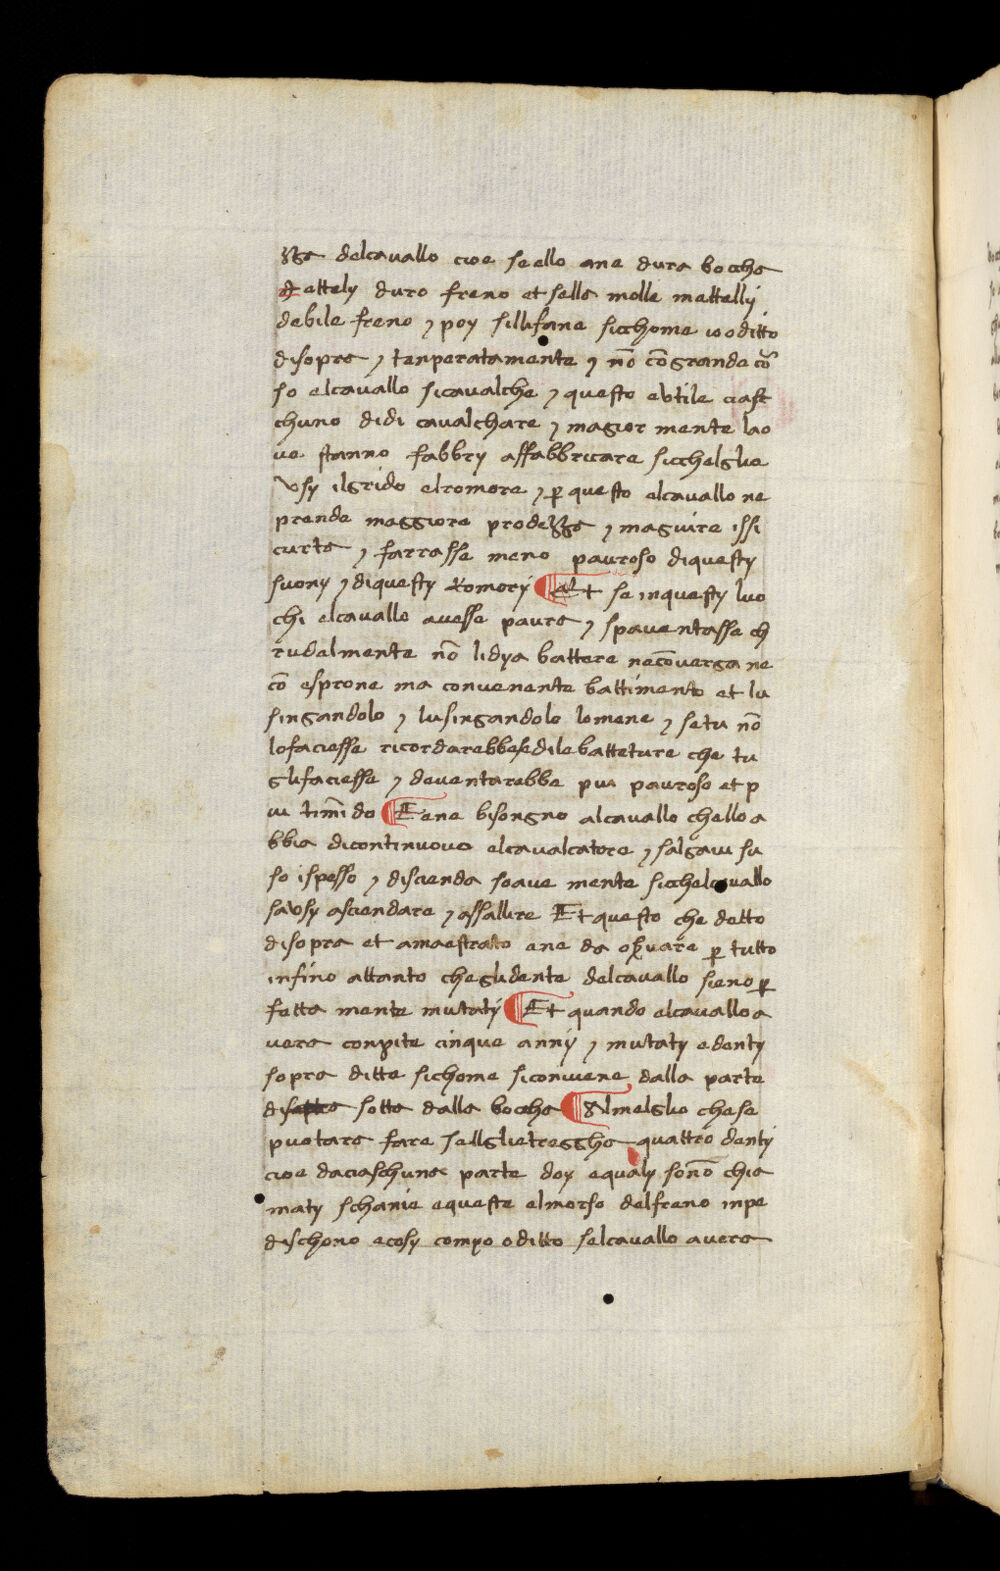 zza delcavallo cioe seello ane dura boccha
et ettely duro freno et sella molle mettelli
debile freno ⁊ poy sillifane sicchome io oditto
disopra ⁊ tenperatamente ⁊ nō cōgrande cō
so elcavallo sicavalche ⁊ questo eutile ciasc
chuno didi cavalchare ⁊ magior mente lao
ve stanno fabbry affabbricare sicchelglie
vsy ilgrido elromore ⁊ ꝑ questo elcavallo ne
prende maggiore prodezza ⁊ maguire issi
curta ⁊ farrasse meno pauroso diquesty
suony ⁊ diquesty Romorÿ ¶ Et se inquesty luo
chi elcavallo avesse paura ⁊ spaventasse ch
rudelmente nō lidya battere necōverga ne
cō esprone ma convenente battimento et lu
singandolo ⁊ lusingandolo lomene ⁊ setu nō
lofaciesse ricordarebbesedile batteture che tu
glifaciesse ⁊ deventarebbe piu pauroso et p
iu timido ¶ Eene bisongno alcavallo chelloa
bbia dicontinuovo elcavalcatore ⁊ salgavi su
so ispesso ⁊ discienda soave mente sicchelcavallo
sausy asciendare ⁊ assallire Et questo che detto
disopra et amaestrato ene da osꝑvare ꝑ tutto
infino attanto cheglidente delcavallo sieno ꝑ
fetta mente mutatÿ ¶ Et quando elcavalloa
vera conpite cinque annÿ ⁊ mutaty edenty
sopra ditte sichome siconviene dalla parte
disopra sotta dalla boccha ¶ Almeglio chese
puotara fare sellglietreggha quattro dentÿ
cioe daciaschuna parte doy equaly sonno chia
maty schanie equeste elmorso delfreno inpe
dischono ecosy compo oditto selcavallo avera